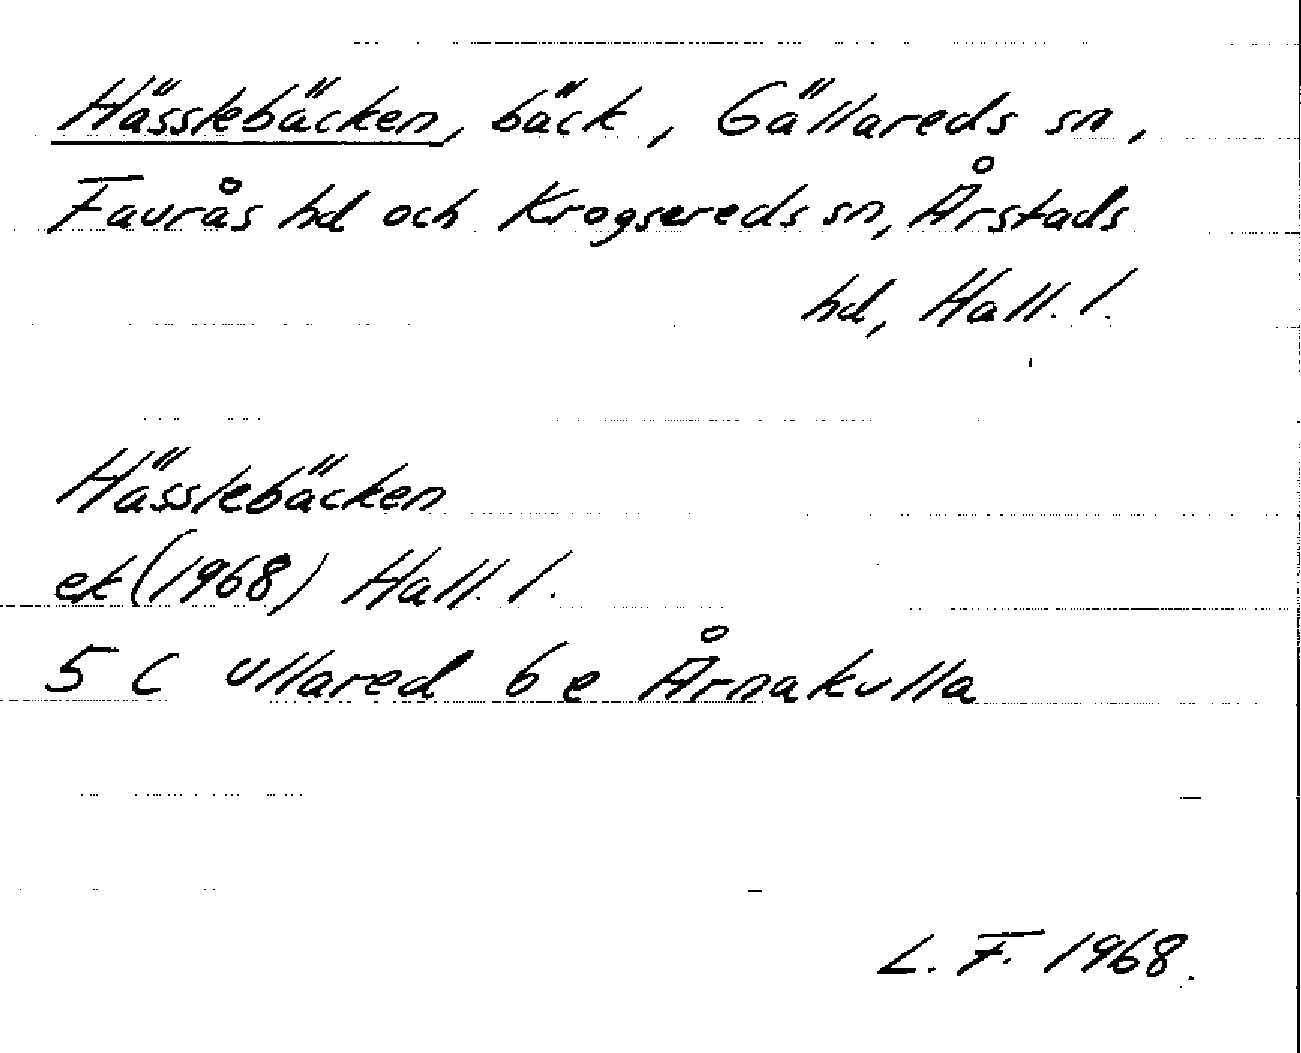 Hässlebäcken, bäck, Gällareds sn,
Faurås hd och Krogsereds sn, Årstads
hd, Hall. l.
Hässlebäcken
ek (1968) Hall. l.
5 C Ullared 6 e Årnakulla
L. F. 1968.